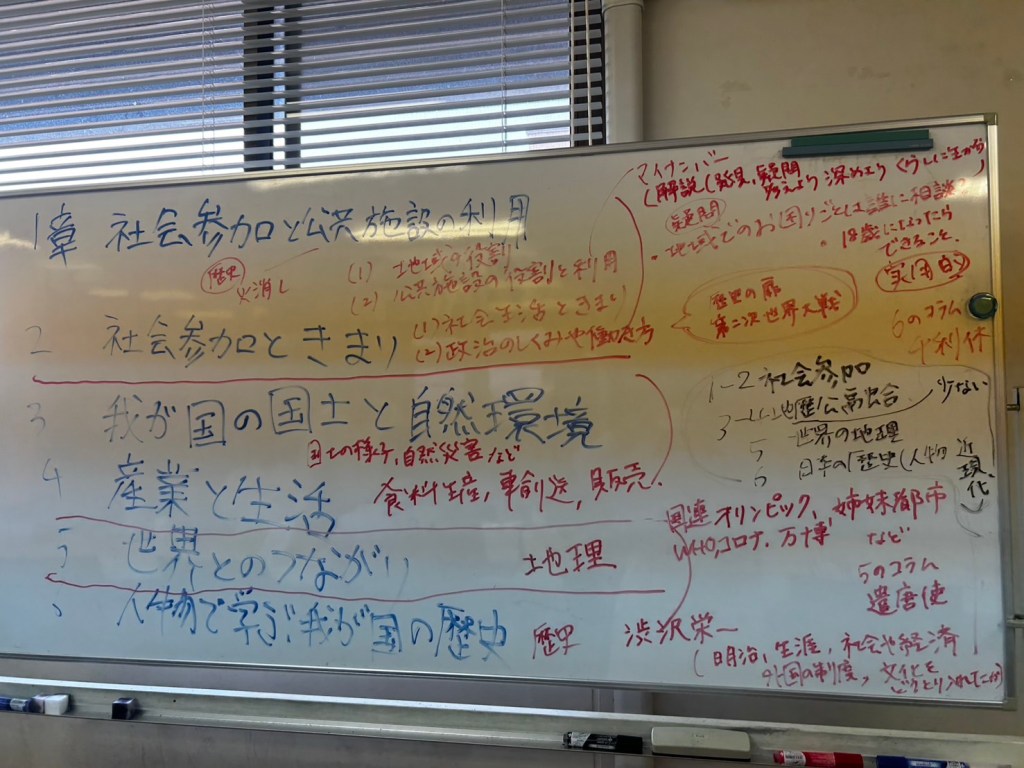 1章 社会参加と公共施設の利用
歴史
火消し
(1) 地域の役割
(2) 公共施設の役割と利用
2 社会参加ときまり
(1)社会生活ときまり
(2)政治のしくみや
3 我が国の国土と自然環境
国土の様子,自然災害など
4 産業と生活
食料生産,車,販売.
5 世界とのつながり
地理
人物で学ぶ我が国の歴史
歴史
マイナンバー
(解説(発見,疑問
考えよう 深めよう くらしに生かす)
疑問
・地域でのお困りごとは誰に相談
・18歳になったら
できること.
実用的
歴史の扉
第二次世界大戦
6のコラム
千利休
1-2 社会参加
少ない
3-4-地歴公融合
5 世界の地理
6 日本の歴史(人物 近現代)
国連 オリンピック、姉妹都市
WHO,コロナ,万博 など
5のコラム
遣唐使
渋沢栄一
(明治,生涯,社会や経済
外国の制度,文化を
どうとり入れてこか)